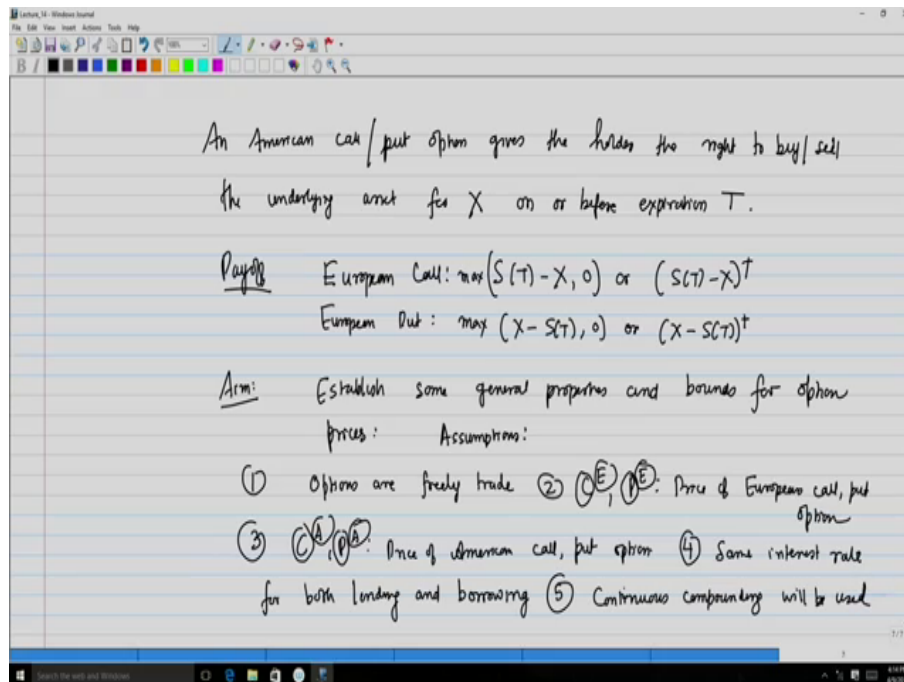 Lecture_14 - Windows Journal
File Edit View Insert Actions Tools Help
B I
An American call/put option gives the holder the right to buy/sell
the underlying asset for X on or before expiration T.
Payoff European Call: max(S(T)-X, 0) or (S(T)-X)⁺
European Put: max (X-S(T), 0) or (X-S(T))⁺
Aim: Establish some general properties and bounds for option
prices: Assumptions:
① Options are freely trade ② C^E, P^E: Price of European call, put
option
③ C^A, P^A: Price of American call, put option ④ Same interest rate
for both lending and borrowing ⑤ Continuous compounding will be used
7/7
7
Search the web and Windows